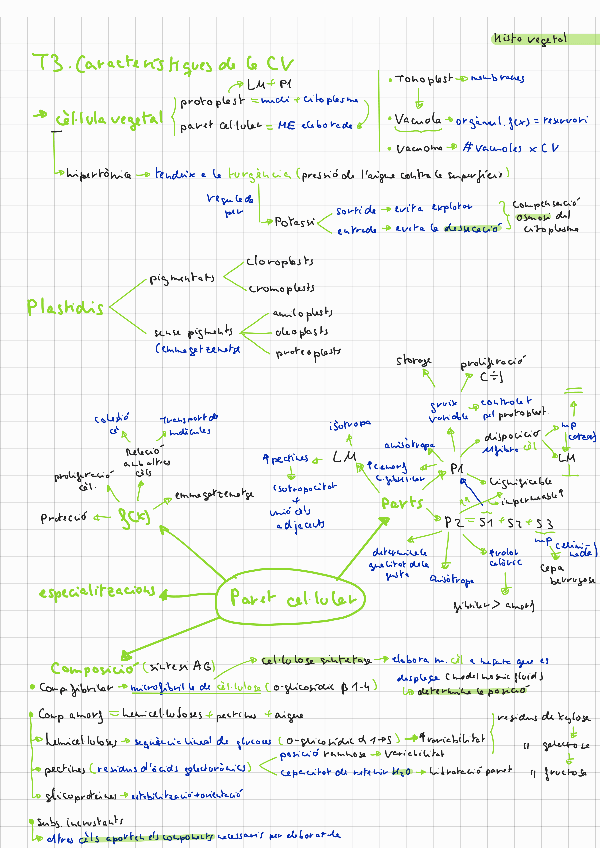 Histo vegetal
T3. Característiques de la CV
→ LM + P1
→ cèl·lula vegetal
protoplast = nucli + citoplasma
paret cel·lular = ME elaborada
• Tonoplast → membranes
• Vacuola → orgànul. f(x) = reservori
• Vacuoma → # vacuoles x CV
→ hipertònica → tendeix a la turgència (pressió de l'aigua contra la superfície)
regulada per
→ Potassi
sortida → evita explotar
entrada → evita la dessecació
compensació osmosi del citoplasma
Plastidis
pigmentats
cloroplasts
cromoplasts
sense pigments
(emmagatzematge
amiloplasts
oleoplasts
proteoplasts
Paret cel·lular
f(x)
Protecció
proliferació cèl.
Relació amb altres cèls
Cohesió cè
Transport de molècules
emmagatzematge
especialitzacions
Parts
LM
isòtropa
↑pectines
isotropacitat + unió cèls adjacents
P1
↑camorf
c.fibril·lar
anisòtropa
gruix variable
storage
proliferació C÷)
→ controlat pel protoplast
disposició μfibra cèl
mp
LM
→ Lignificable
→ impermeable↑
P2 = S1 + S2 + S3
determina la qualitat de la fusta
Anisòtropa
↑valor calòric
fibrilar > amorf
mp
cepa berrugosa
Composició (síntesi AG)
→ cel·lulosa sintetasa → elabora m. cèl a mesura que es desplaça (model mosaic fluid)
↳ determina la posició
• Comp fibrilar → microfibril·la de cèl·lulosa (o-glicosídic β 1-4)
• Comp amorf = hemicel·luloses + pectines + aigua
→ hemicel·luloses → seqüència lineal de glucosa (O-glicosídic α 1→5) → ↑ variabilitat
residus de xylosa
" galactosa
" fructosa
→ pectines (residus d'àcids galacturònics)
posició ramnosa → variabilitat
capacitat de retenir H₂O → hidratació paret
→ glicoproteïnes → estabilització + orientació
• subs. incrustants
• altres cèls aporten els components necessaris per elaborar-la